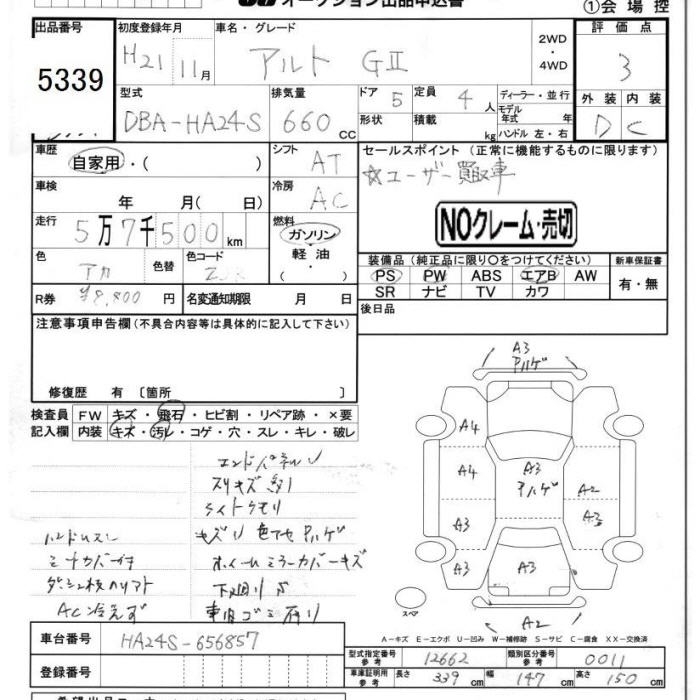 オークション出品申込書
①会場控
出品番号
5339
初度登録年月
H21 11月
車名・グレード
アルト GⅡ
2WD
・
4WD
評価点
3
型式
DBA-HA24S
排気量
660 cc
ドア 5
定員 4 人
形状
積載 kg
ディーラー・並行
モデル年式 年
ハンドル 左・右
外装 内装
D C
車歴
自家用・( )
シフト AT
車検
年 月( 日)
冷房 AC
走行
5万7千500km
燃料
ガソリン
・
軽油
・
( )
色
アカ
色替
色コード
R券 ¥8,800円
名変通知期限 月 日
セールスポイント(正常に機能するものに限ります)
☆ユーザー買取車
NOクレーム・売切
装備品(純正品に限り○をつけてください)
新車保証書
PS PW ABS エアB AW
SR ナビ TV カワ
有・無
後日品
注意事項申告欄(不具合内容等は具体的に記入して下さい)
修復歴 有 〔箇所 〕
検査員 FW キズ・飛石・ヒビ割・リペア跡・×要
記入欄 内装 キズ・汚レ・コゲ・穴・スレ・キレ・破レ
スリキズ
ライトクモリ
ハンドルスレ
キズ 色アセ Pハゲ
ホイールミラーカバーキズ
下廻りサ
AC冷えず
車内ゴミ有り
A3
Pハゲ
A4
A4
A3
A3
A3
Pハゲ
A2
A2
A3
A2
スペア
A-キズ E-エクボ U-凹み W-補修跡 S-サビ C-腐食 XX-交換済
車台番号 HA24S-656857
登録番号
型式指定番号参考 12662
類別区分番号参考 0011
車庫証明用参考 長さ 339cm 幅 147cm 高さ 150cm